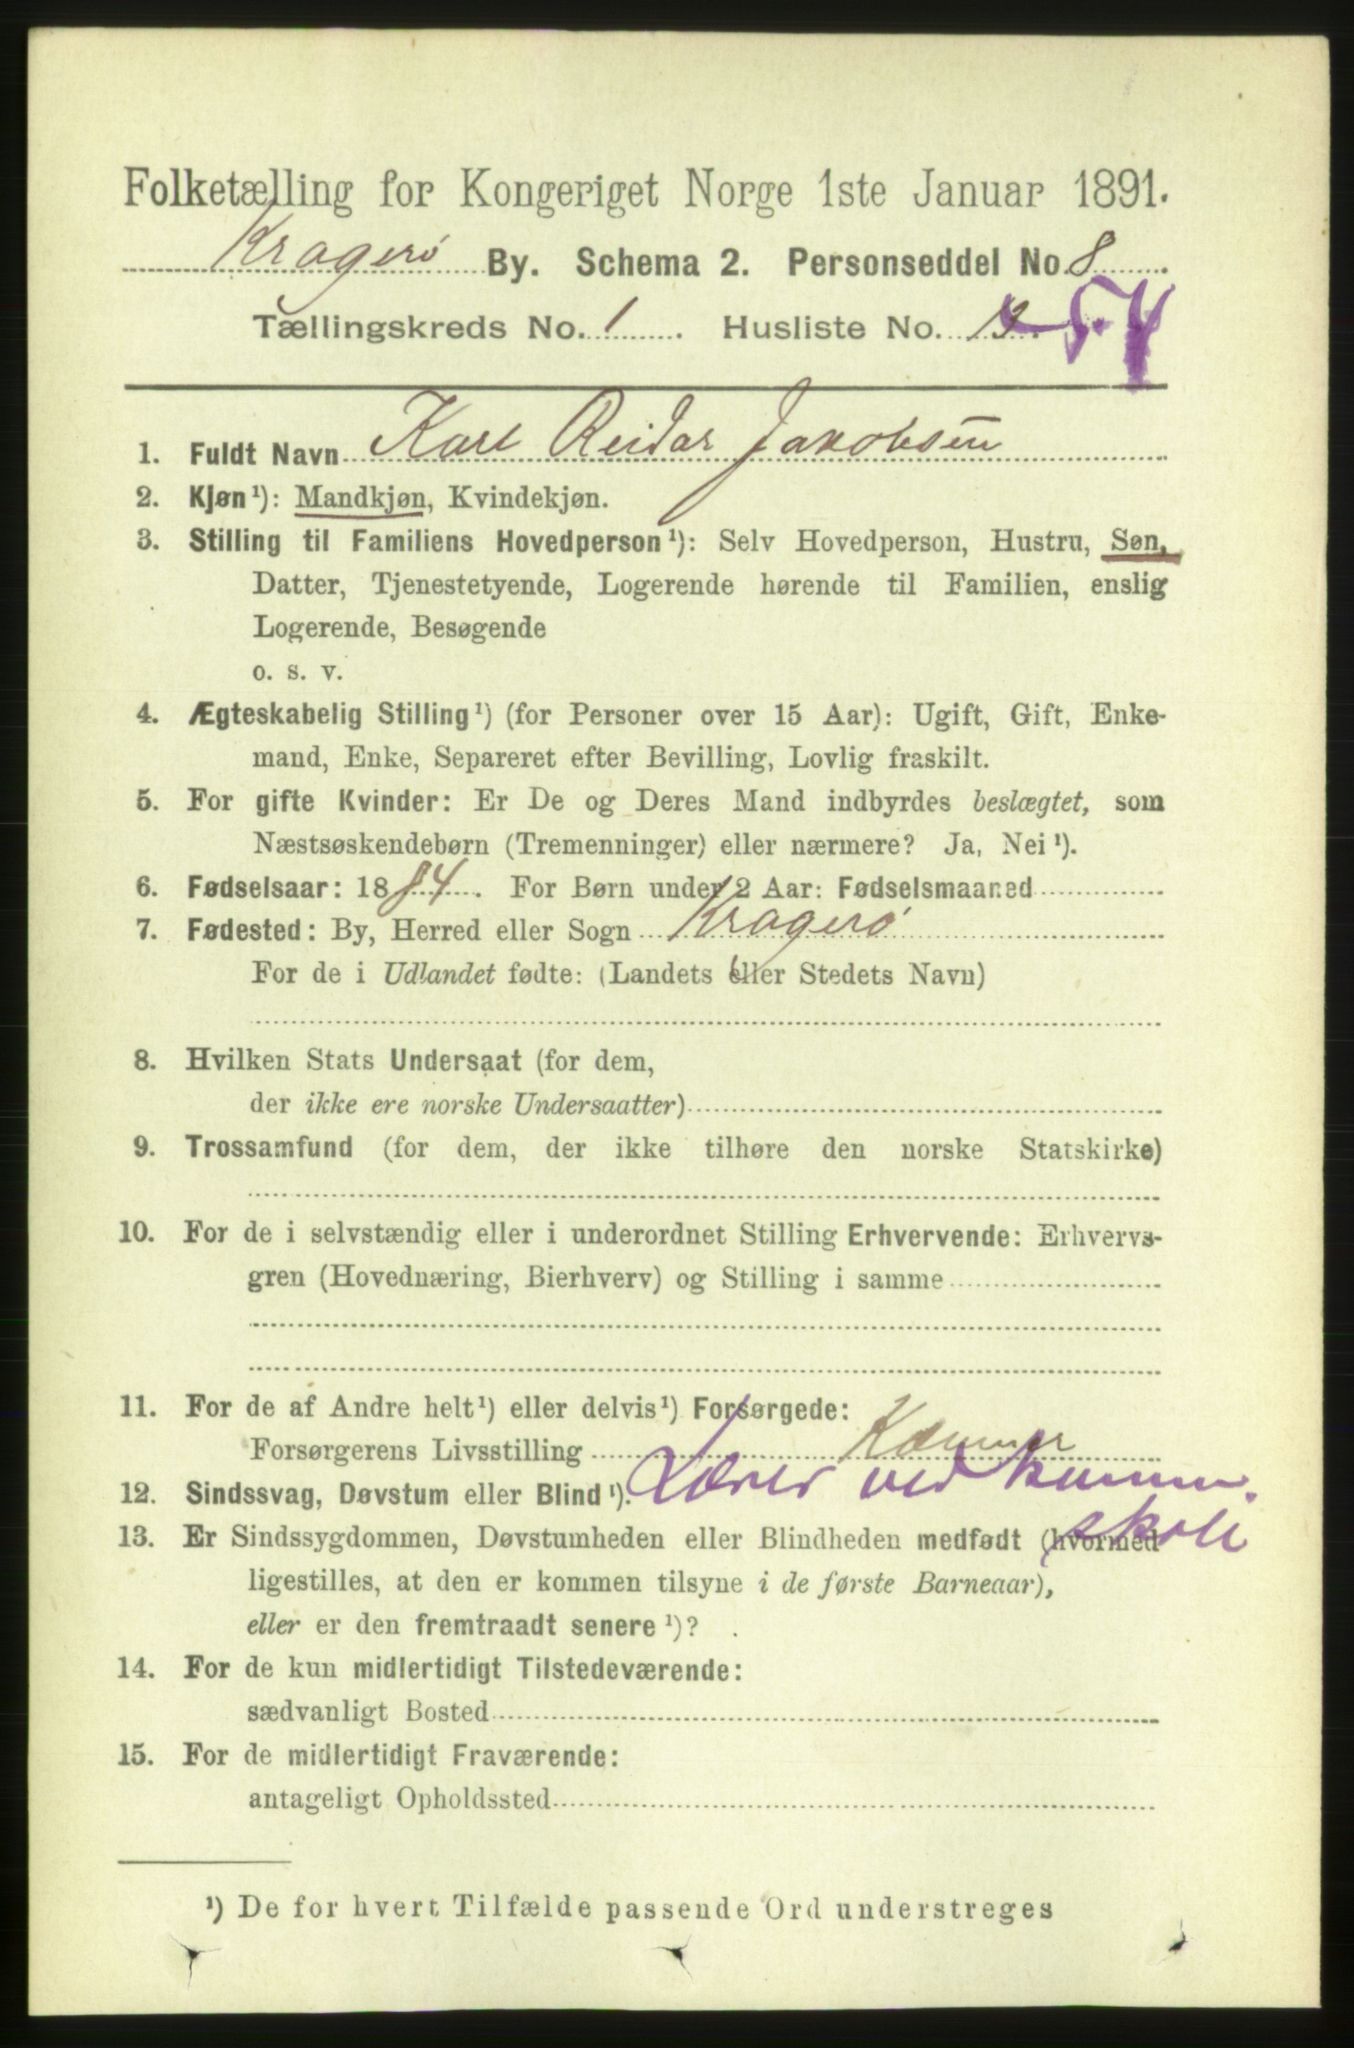 Folketælling for Kongeriget Norge 1ste Januar 1891.
Kragerø By. Schema 2. Personseddel No. 8
Tællingskreds No. 1. Husliste No. 13. 54
1. Fuldt Navn Karl Reidar Jakobsen
2. Kjøn¹): Mandkjøn, Kvindekjøn.
3. Stilling til Familiens Hovedperson¹): Selv Hovedperson, Hustru, Søn,
Datter, Tjenestetyende, Logerende hørende til Familien, enslig
Logerende, Besøgende
o. s. v.
4. Ægteskabelig Stilling¹) (for Personer over 15 Aar): Ugift, Gift, Enke-
mand, Enke, Separeret efter Bevilling, Lovlig fraskilt.
5. For gifte Kvinder: Er De og Deres Mand indbyrdes beslægtet, som
Næstsøskendebørn (Tremenninger) eller nærmere? Ja, Nei¹).
6. Fødselsaar: 1884. For Børn under 2 Aar: Fødselsmaaned
7. Fødested: By, Herred eller Sogn Kragerø
For de i Udlandet fødte: (Landets eller Stedets Navn)
8. Hvilken Stats Undersaat (for dem,
der ikke ere norske Undersaatter)
9. Trossamfund (for dem, der ikke tilhøre den norske Statskirke)
10. For de i selvstændig eller i underordnet Stilling Erhvervende: Erhvervs-
gren (Hovednæring, Bierhverv) og Stilling i samme
11. For de af Andre helt¹) eller delvis¹) Forsørgede:
Forsørgerens Livsstilling Kæmner
Lærer ved kommu.
12. Sindssvag, Døvstum eller Blind¹).
skole
13. Er Sindssygdommen, Døvstumheden eller Blindheden medfødt (hvormed
ligestilles, at den er kommen tilsyne i de første Barneaar),
eller er den fremtraadt senere¹)?
14. For de kun midlertidigt Tilstedeværende:
sædvanligt Bosted
15. For de midlertidigt Fraværende:
antageligt Opholdssted
¹) De for hvert Tilfælde passende Ord understreges